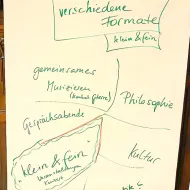 verschiedene
Formate
klein & fein
gemeinsames
Musizieren
Philosophie
Gesprächsabende
klein & fein
Kultur